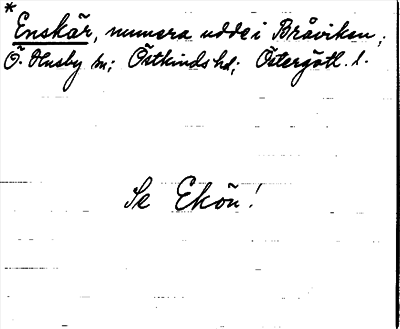 * Enskär, numera udde i Bråviken;
Ö. Husby sn; Östkinds hd; Östergötl. l.
Se Ekön!